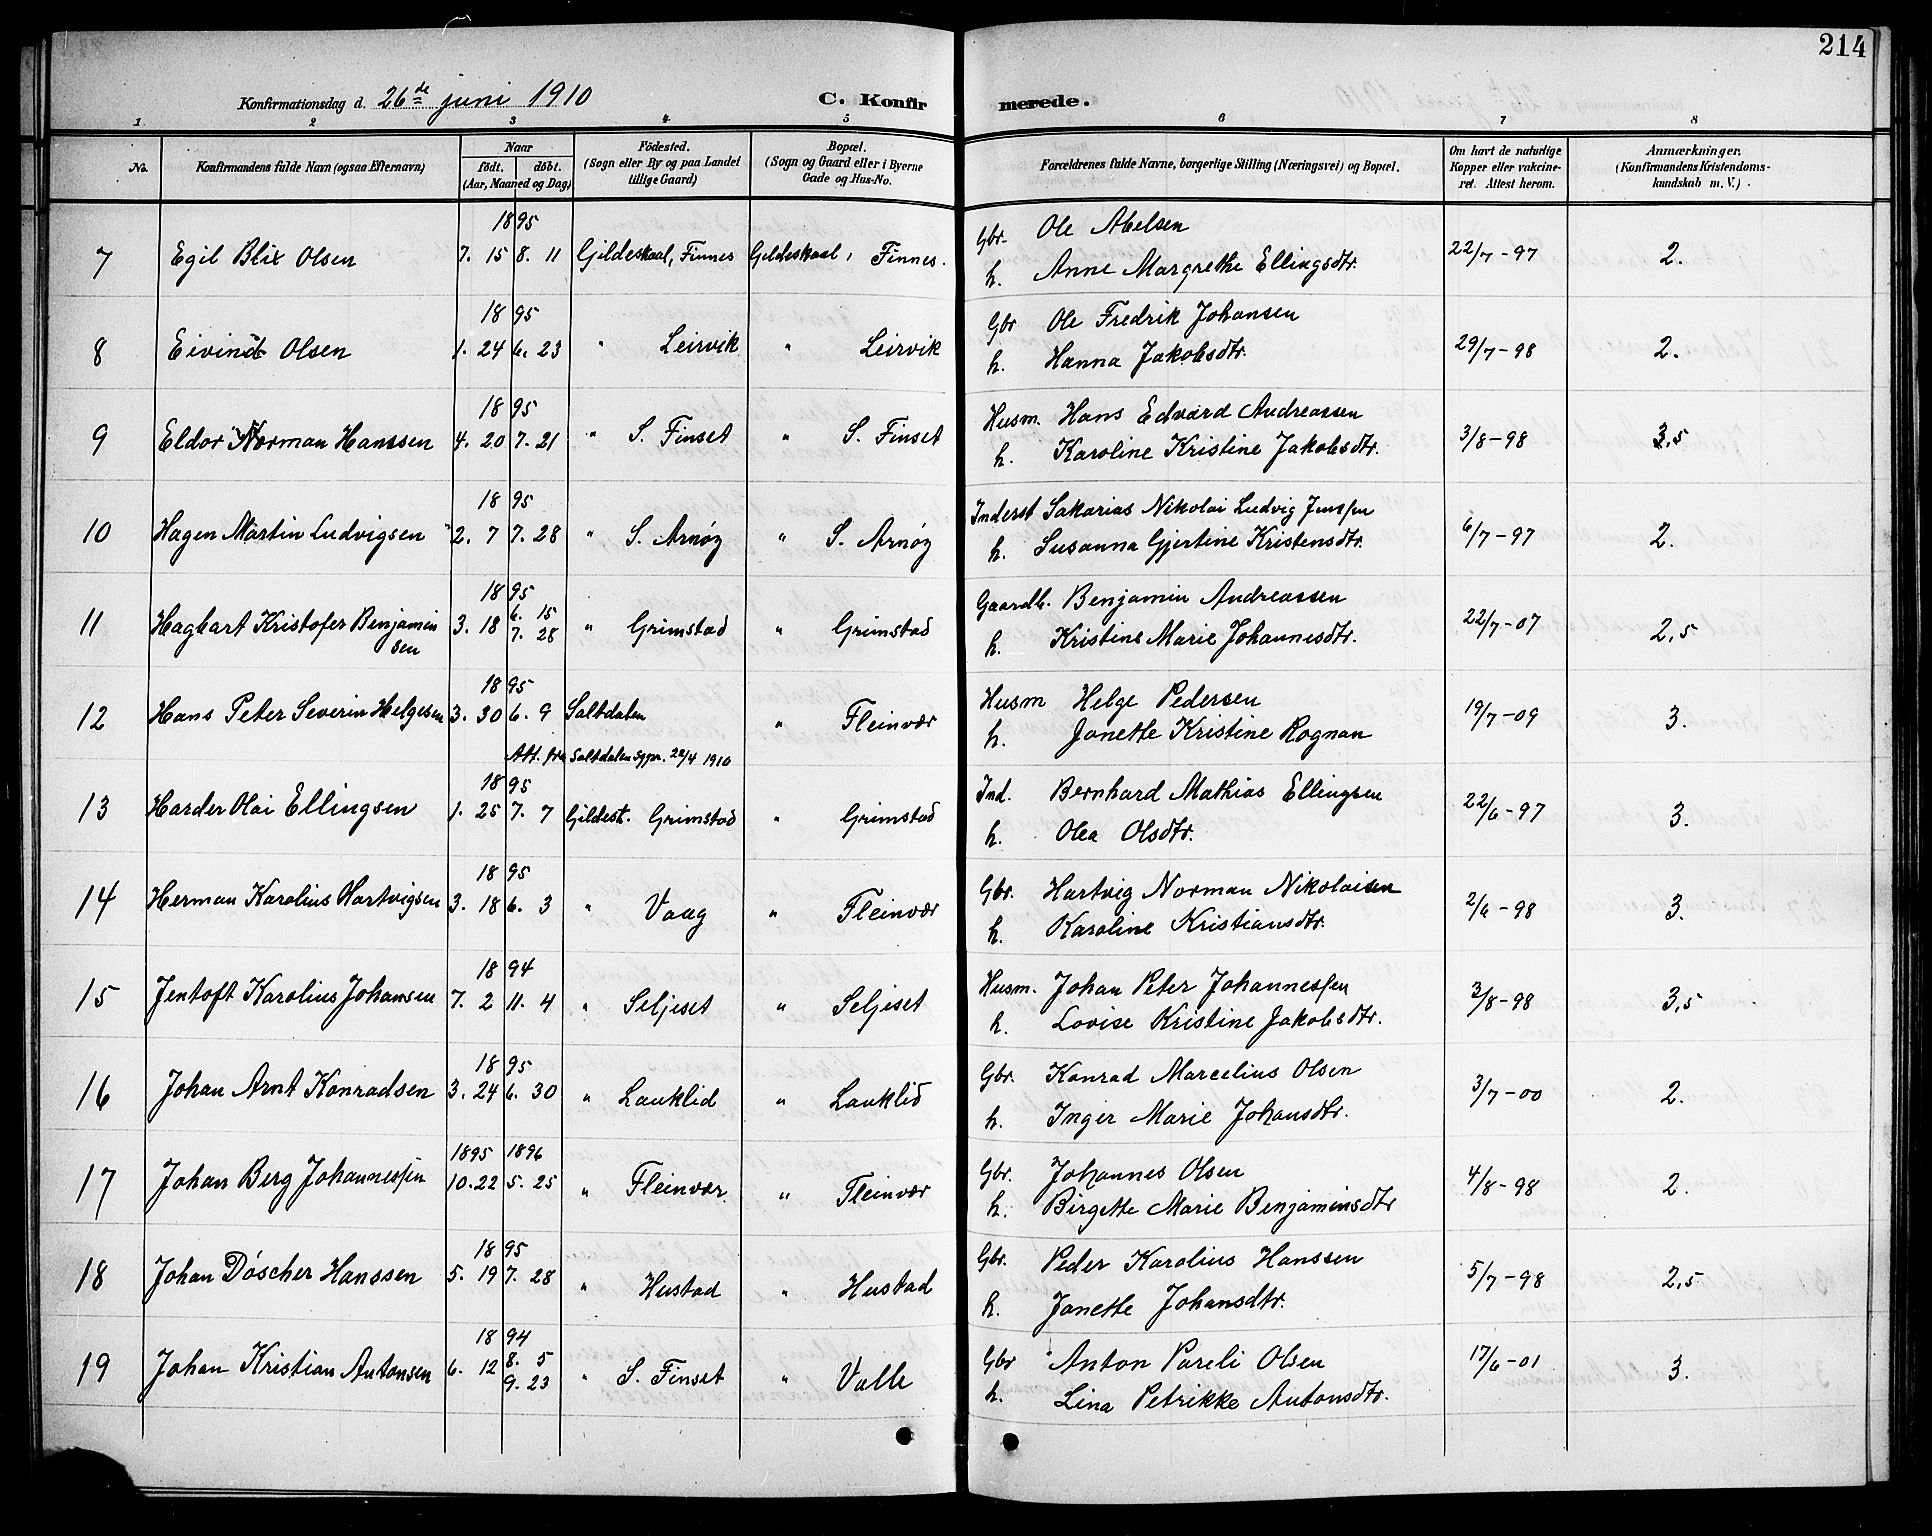 214
Konfirmationsdag d. 26de juni 1910 C. Konfir merede.
1 2 3 4 5 6 7 8
No. Konfirmandens fulde Navn (ogsaa Efternavn) Naar født. døbt. (Aar, Maaned og Dag) Fødested. (Sogn eller By og paa Landet tillige Gaard) Bopæl. (Sogn og Gaard eller i Byerne Gade og Hus-No. Forældrenes fulde Navne, borgerlige Stilling (Næringsvei) og Bopæl. Om havt de naturlige Kopper eller vakcineret. Attest herom. Anmærkninger. (Konfirmandens Kristendomskundskab m. V.).
1895 Gbr. Ole Abelsen
7 Egil Blix Olsen 7. 15 8. 11 Gildeskaal, Finnes Gildeskaal, Finnes. 22/7-97 2.
h. Anne Margrethe Ellingsdtr.
1895 Gbr Ole Fredrik Johansen
8 Eivind Olsen 1. 24 6. 23 " Leirvik " Leirvik 29/7-98 2.
h. Hanna Jakobsdtr.
1895 Husm. Hans Edvard Andreassen
9 Eldor Norman Hanssen 4. 20 7. 21 " S. Finset " S. Finset 3/8-98 3,5
h. Karoline Kristine Jakobsdtr.
1895 Inderst Sakarias Nikolai Ludvig Jenssen
10 Hagen Martin Ludvigsen 2. 7 7. 28 " S. Arnøy " S. Arnøy 6/7-97 2.
h. Susanna Gjertine Kristensdtr.
1895 Gaardb. Benjamin Andreassen
6. 15
11 Hagbart Kristofer Benjamin 3. 18 7. 28 " Grimstad " Grimstad 22/7-07 2,5
sen h. Kristine Marie Johannesdtr.
1895 Husm Helge Pedersen
12 Hans Peter Severin Helgesen 3. 30 6. 9 Saltdalen " Fleinvær 19/7-09 3.
h. Janette Kristine Rognan
Att. fra Saltdalen sgpr. 22/4 1910
1895 Ind. Bernhard Mathias Ellingsen
13 Harder Olai Ellingsen 1. 25 7. 7 Gildesk. Grimstad " Grimstad 22/6-97 3.
h. Olea Olsdtr.
1895 Gbr. Hartvig Norman Nikolaisen
14 Herman Karolius Hartvigsen 3. 18 6. 3 " Vaag " Fleinvær 2/6-98 3.
h. Karoline Kristiansdtr.
1894 Husm. Johan Peter Johannessen
15 Jentoft Karolius Johansen 7. 2 11. 4 " Seljeset " Seljeset 3/8-98 3,5
h. Lovise Kristine Jakobsdtr.
1895 Gbr. Konrad Marcelius Olsen
16 Johan Arnt Konradsen 3. 24 6. 30 " Lauklid " Lauklid 3/7-00 2.
h. Inger Marie Johansdtr.
1895 1896 Gbr. Johannes Olsen
17 Johan Berg Johannessen 10. 22 5. 25 " Fleinvær. " Fleinvær 4/8-98 2.
h. Birgitte Marie Benjaminsdtr
1895 Gbr. Peder Karolius Hanssen
18 Johan Döscher Hanssen 5. 19 7. 28 " Hustad " Hustad 5/7-98 2,5
h. Janette Johansdtr.
1894 Gbr Anton Pareli Olsen
19 Johan Kristian Antonsen 6. 12 8. 5 " S. Finset " Valle 17/6-01 3.
9. 23 h. Lina Petrikke Antonsdtr.